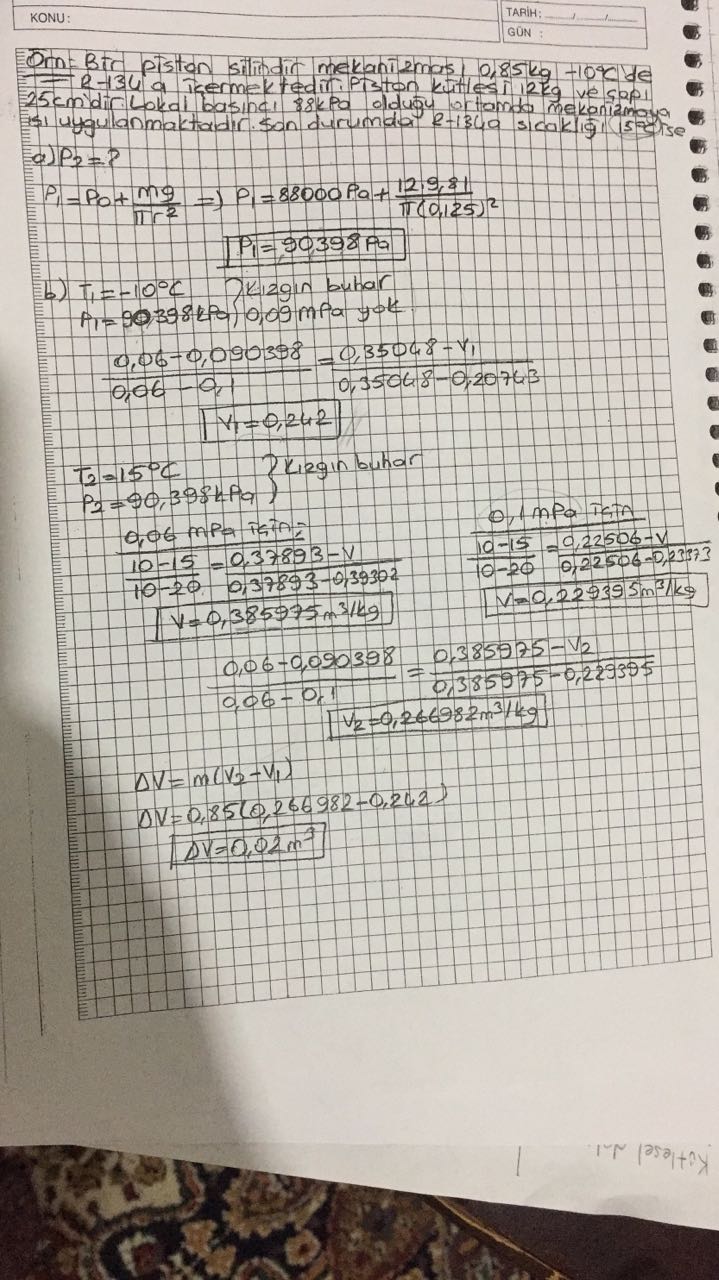 KONU:
TARİH: / /
GÜN :
Örn: Bir piston silindir mekanizması 0,85kg -10°C de
R-134a içermektedir. Piston kütlesi 12kg ve çapı
25cm'dir. Lokal basıncı 88kPa olduğu ortamda mekanizmaya
ısı uygulanmaktadır. Son durumda R-134a sıcaklığı 15°C ise
a) P2=?
P1=P0+mg/πr² => P1=88000Pa+12.9,81/π(0,125)²
P1=90398Pa
b) T1=-10°C } Kızgın buhar
P1=90,398kPa } 0,09mPa yok
0,06-0,090398/0,06-0,1=0,35048-V1/0,35048-0,20743
V1=0,242
T2=15°C } Kızgın buhar
P2=90,398kPa
0,06 mPa için:
10-15/10-20=0,37893-V/0,37893-0,39302
V=0,385975m³/kg
0,1mPa için
10-15/10-20=0,22506-V/0,22506-0,23373
V=0,229395m³/kg
0,06-0,090398/0,06-0,1=0,385975-V2/0,385975-0,229395
V2=0,266982m³/kg
ΔV=m(V2-V1)
ΔV=0,85(0,266982-0,242)
ΔV=0,02m³
Kütlesel